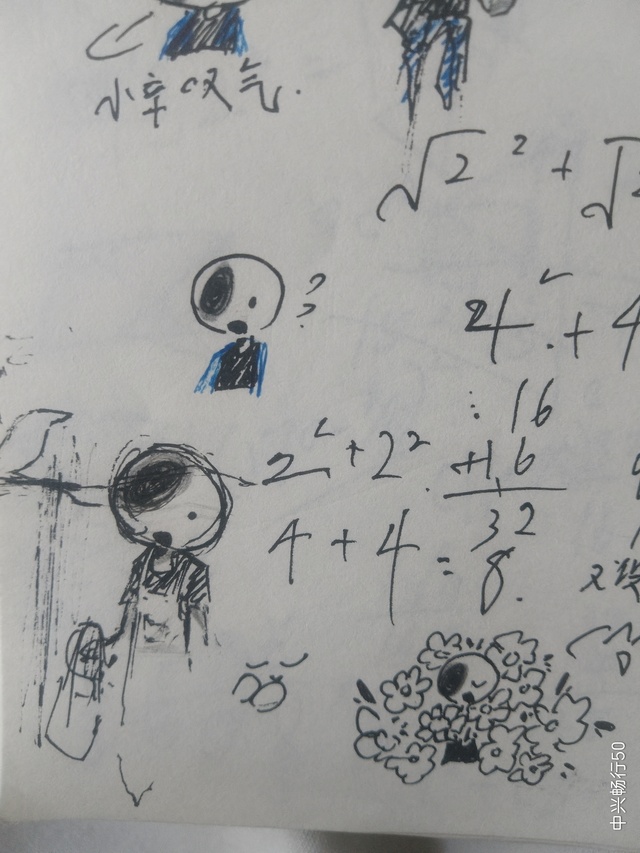 小辛叹气.
√2 ² + √2
??
4² + 4
: 16
2² + 2² . +16
32
4 + 4 = 8.
又
中兴畅行50